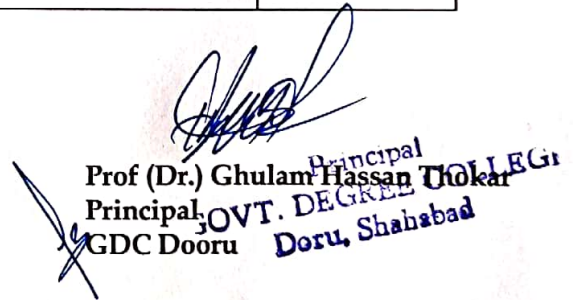 Prof (Dr.) Ghulam Hassan Thokar
Principal
GDC Dooru
Principal
GOVT. DEGREE COLLEGE
Doru, Shahabad